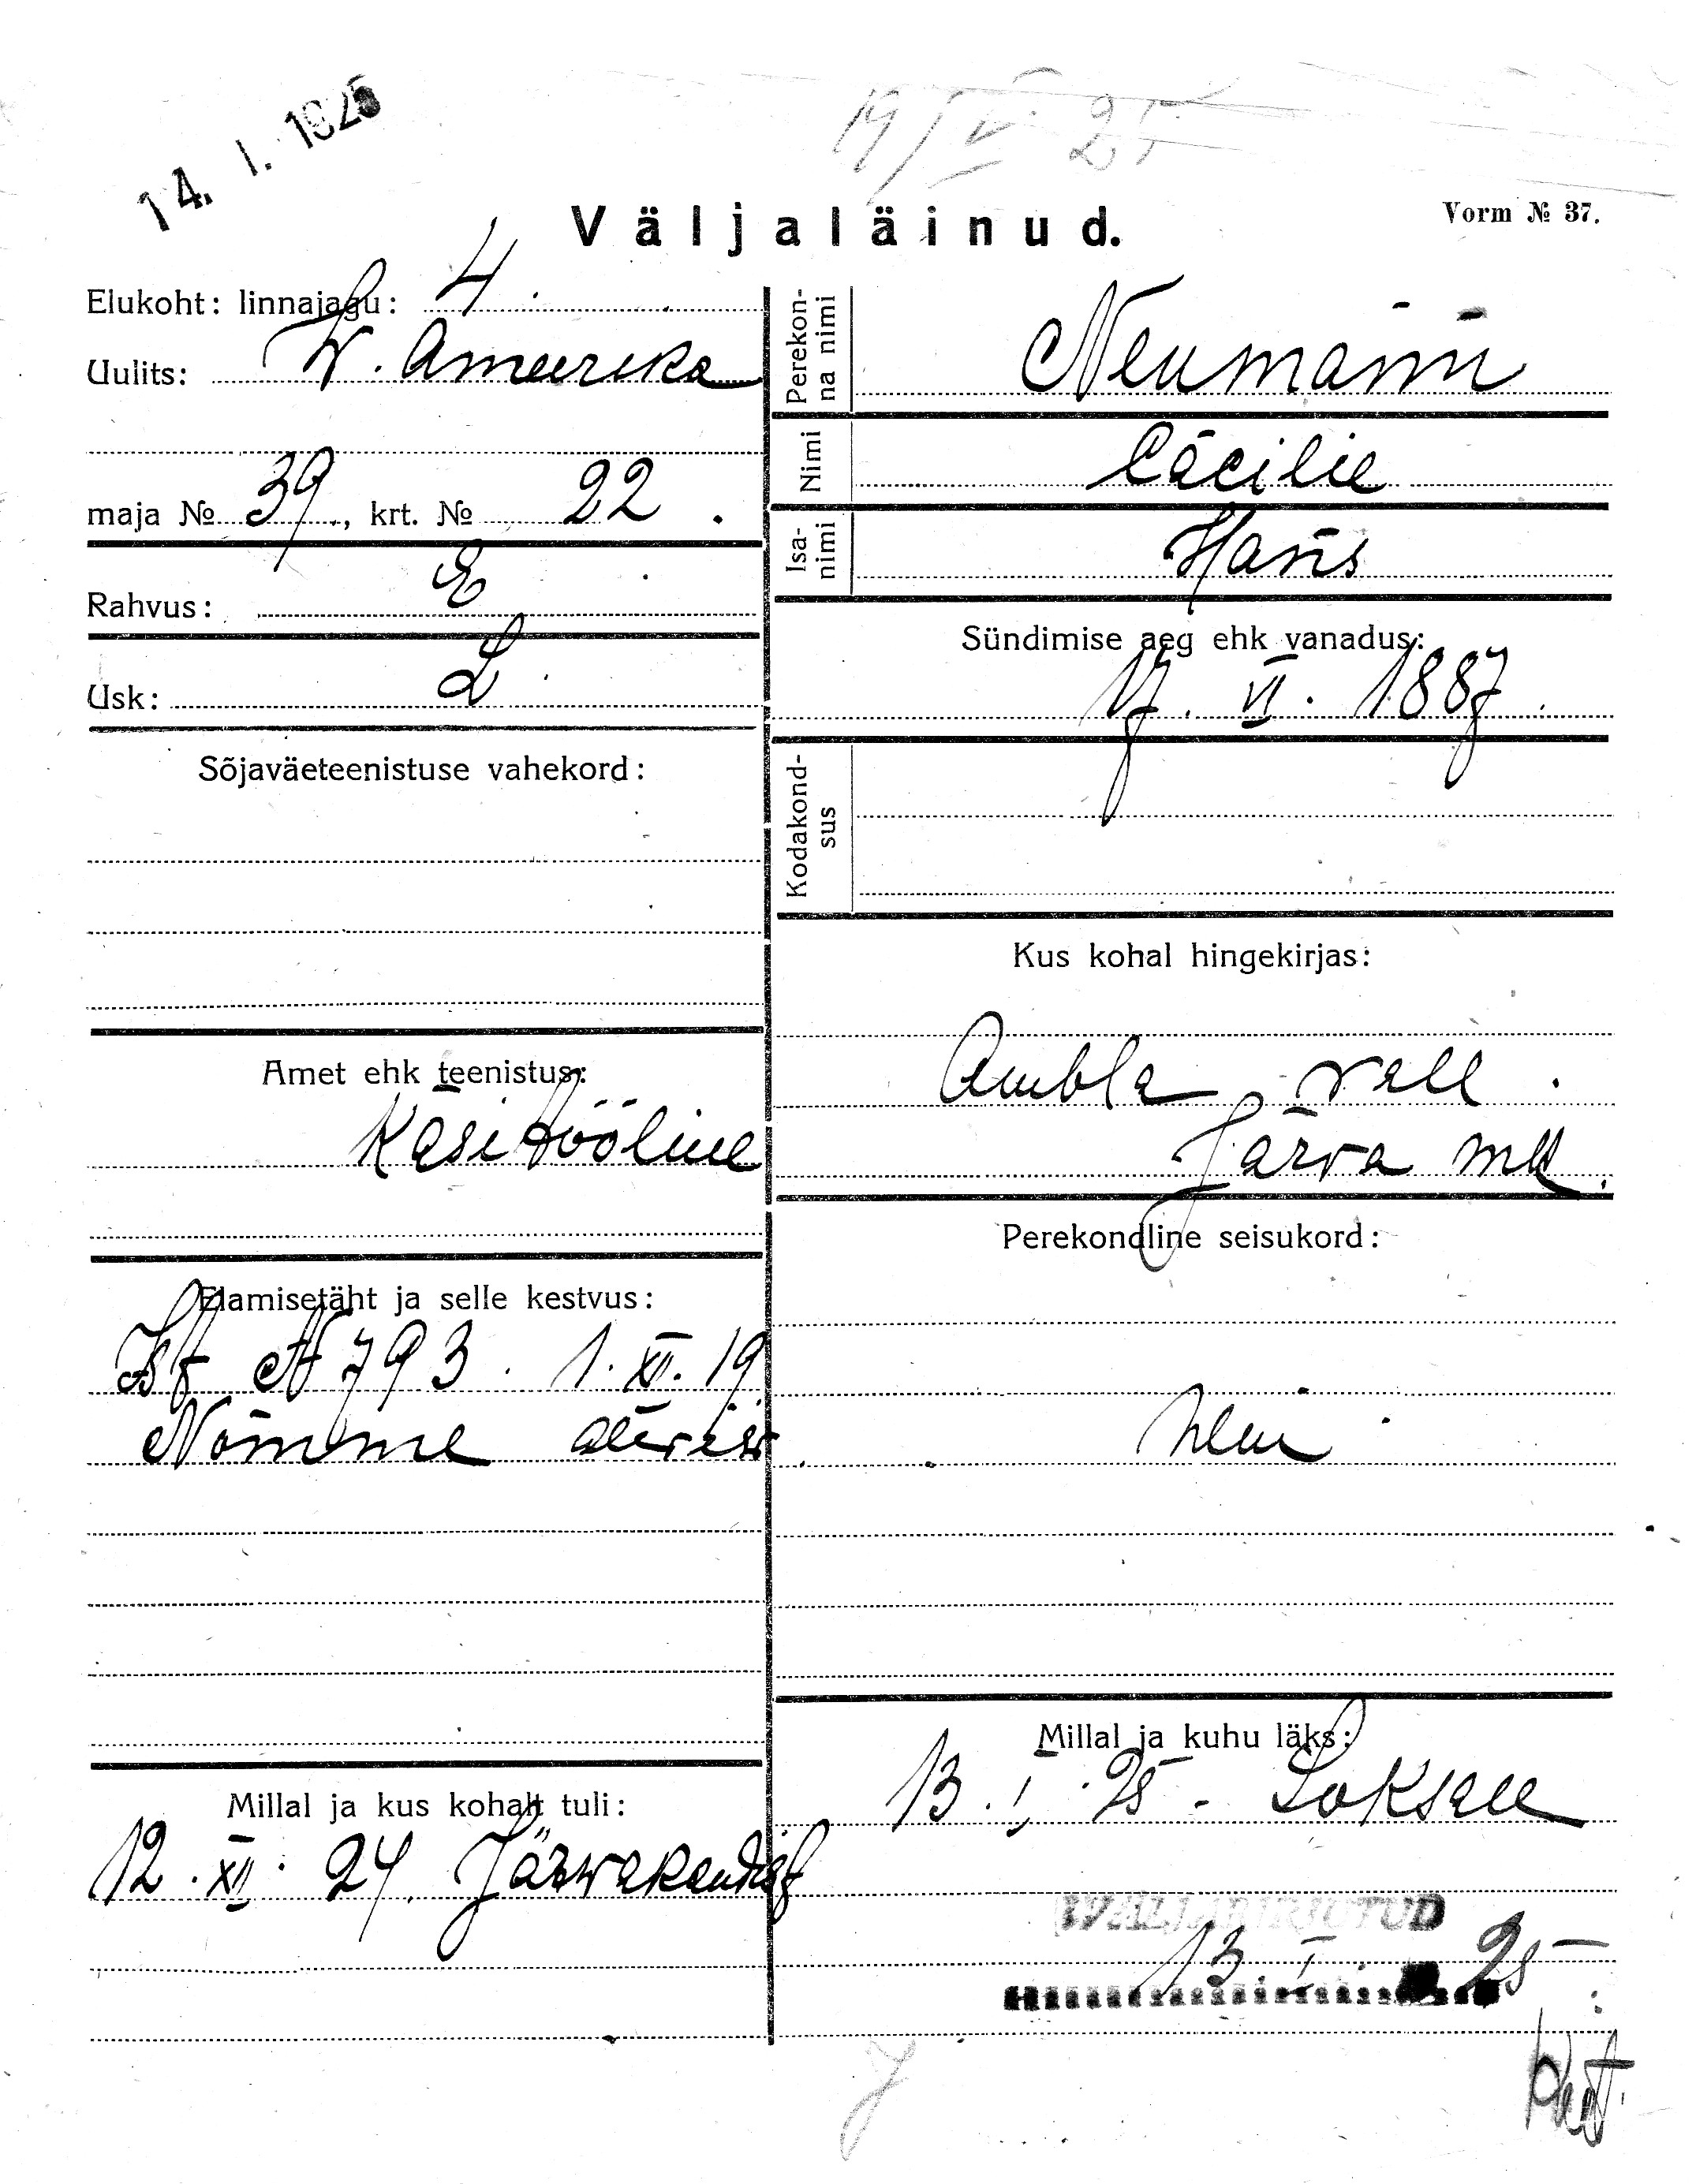 14. I. 1925
19/V 25
Väljaläinud.
Vorm № 37.
Elukoht: linnajagu: 4
Uulits: W. Ameerika
maja № 39, krt. № 22.
Rahvus: E
Usk: L
Sõjaväeteenistuse vahekord:
Amet ehk teenistus:
Käsitööline
Elamisetäht ja selle kestvus:
№ 793. 1. XII. 19
Nõmme alevist
Millal ja kus kohalt tuli:
12. XII. 24. Järwakandist
Perekonna nimi
Neumann
Nimi
Cäcilie
Isanimi
Hans
Sündimise aeg ehk vanadus:
17. VI. 1887.
Kodakondsus
Kus kohal hingekirjas:
Ambla vall.
Järva mk.
Perekondline seisukord:
Millal ja kuhu läks:
13. I. 25. Loksale
WÄLJAKIRJUTUD
13 I. 25